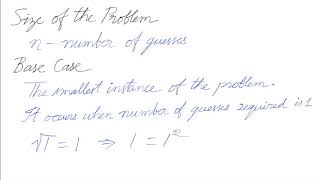 Size of the Problem
n - number of guesses
Base Case
The smallest instance of the problem.
It occurs when number of guesses required is 1
√1 = 1 ⇒ 1 = 1²